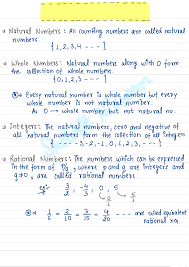 • Natural Numbers: All counting numbers are called natural
numbers.
{1, 2, 3, 4 - - - }
• Whole Numbers: Natural numbers along with 0 form
the collection of whole numbers.
{0, 1, 2, 3 - - - }
Every natural number is whole number but every
whole number is not natural number.
As 0 → whole number but not natural no.
• Integers: The natural numbers, zero and negative of
all natural numbers form the collection of all integers
{ - - - -3, -2, -1, 0, 1, 2, 3, - - - }
• Rational Numbers: The numbers which can be expressed
in the form of p/q, where p and q are integers and
q≠0, are called rational numbers.
eg: 3/2, -4/3, 0, 5
1/5 = 2/10 = 3/15 = 4/20 - - - are called equivalent
rational nos.